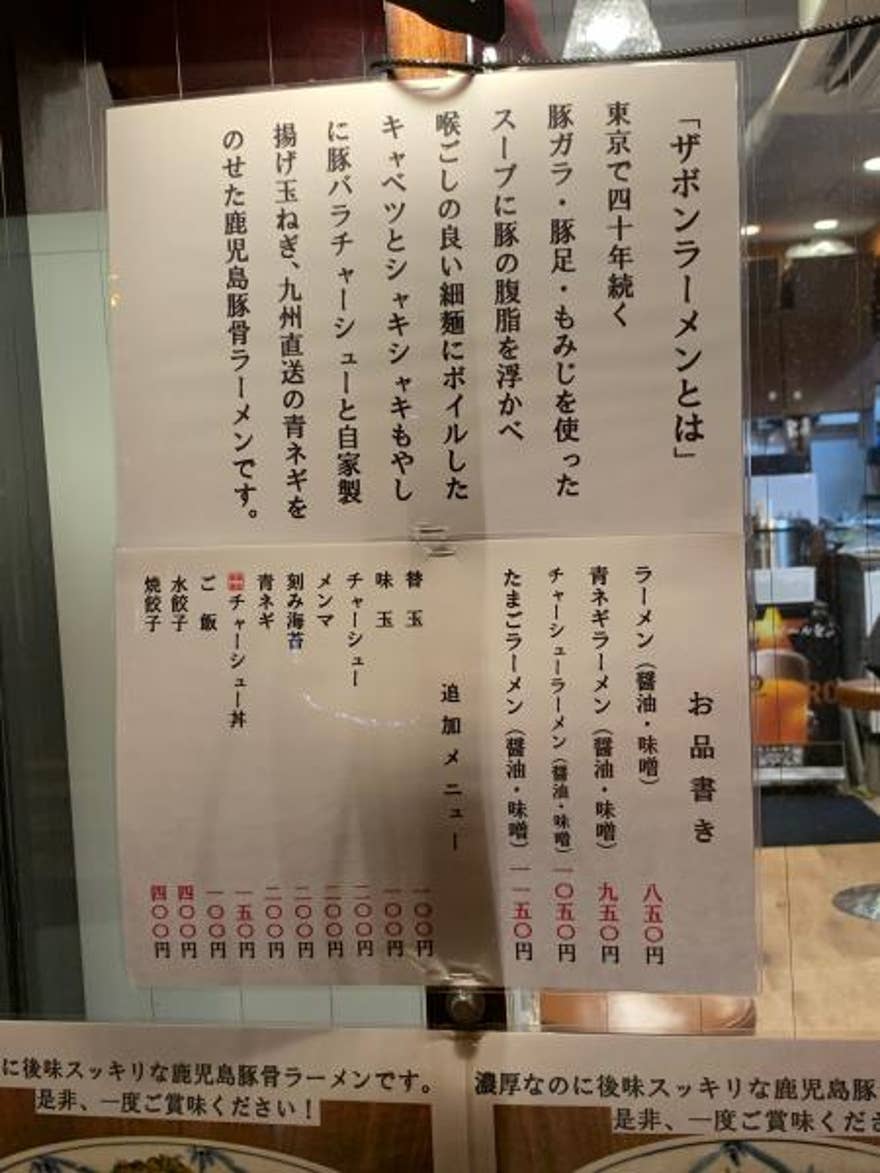 「ザボンラーメンとは」
東京で四十年続く
豚ガラ・豚足・もみじを使った
スープに豚の腹脂を浮かべ
喉ごしの良い細麺にボイルした
キャベツとシャキシャキもやし
に豚バラチャーシューと自家製
揚げ玉ねぎ、九州直送の青ネギを
のせた鹿児島豚骨ラーメンです。
お品書き
ラーメン（醤油・味噌） 八五〇円
青ネギラーメン（醤油・味噌） 九五〇円
チャーシューラーメン（醤油・味噌） 一〇五〇円
たまごラーメン（醤油・味噌） 一一五〇円
追加メニュー
替玉 一〇〇円
味玉 一〇〇円
チャーシュー 二〇〇円
メンマ 二〇〇円
刻み海苔 二〇〇円
青ネギ 二〇〇円
チャーシュー丼 一五〇円
ご飯 一〇〇円
水餃子 四〇〇円
焼餃子 四〇〇円
に後味スッキリな鹿児島豚骨ラーメンです。
是非、一度ご賞味ください！
濃厚なのに後味スッキリな鹿児島豚
是非、一度ご賞味くださ